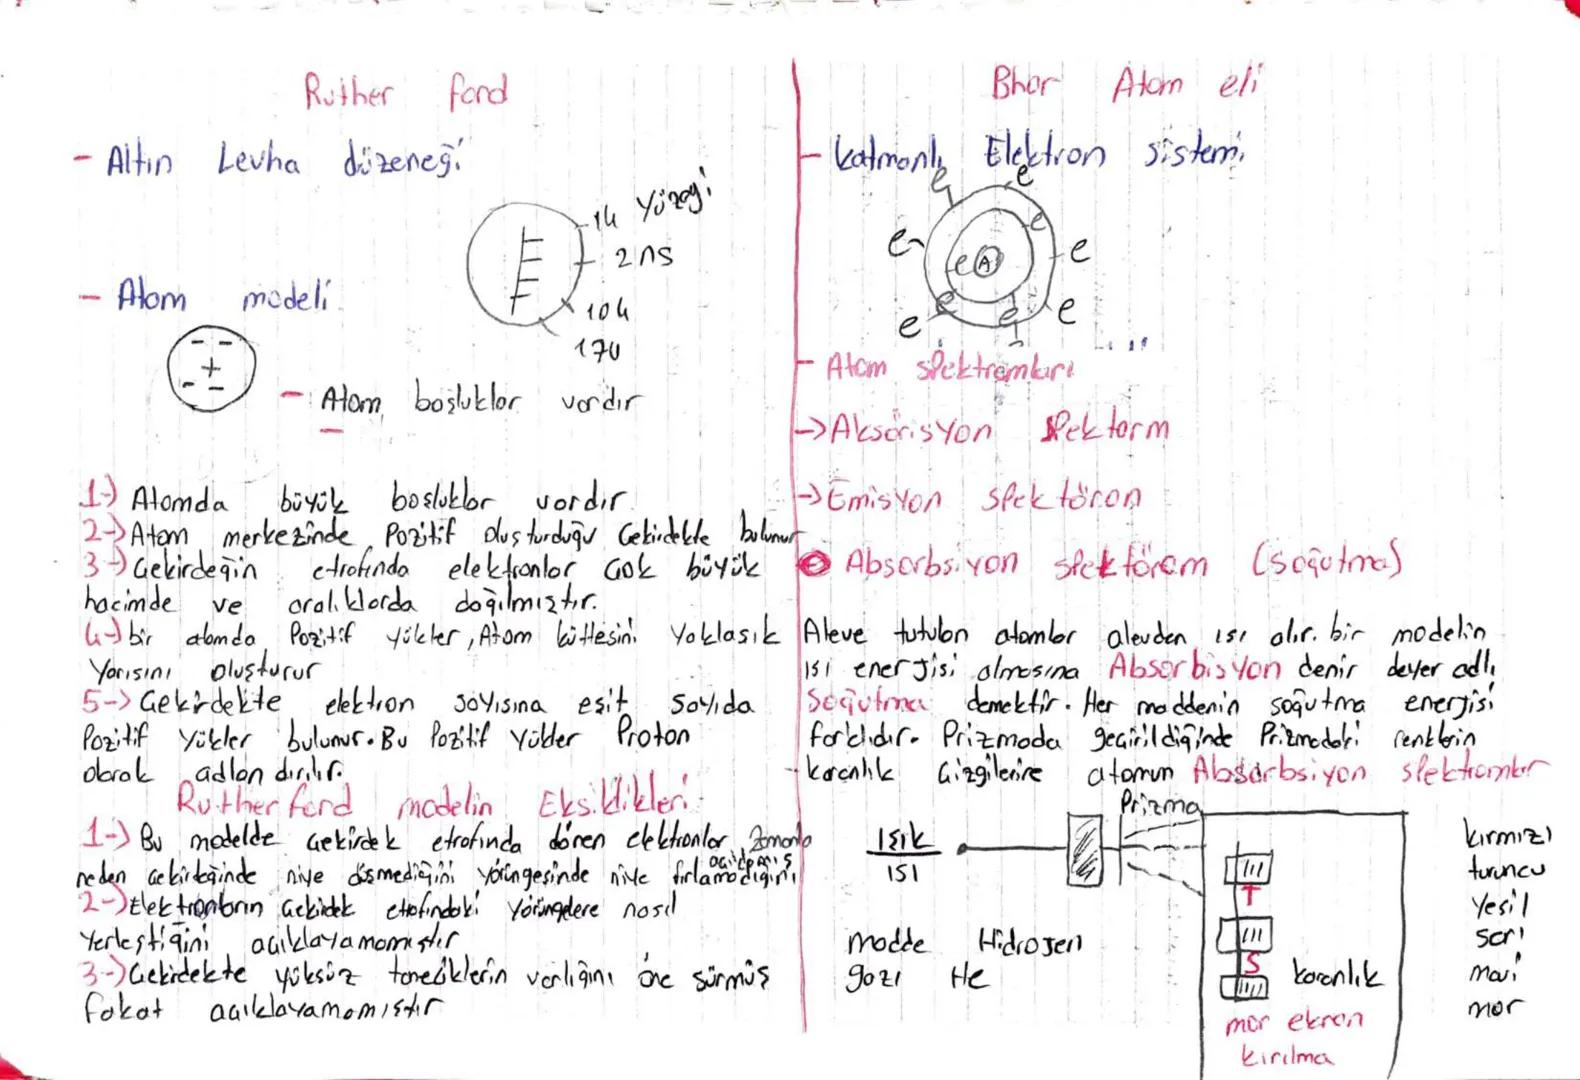 Ruther ford
- Altın Levha düzeneği
2 ns
- Atom modeli
- Atom boşluklar vardır
1-) Atomda büyük boşluklar vardır.
2-) Atom merkezinde Pozitif oluşturduğu Çekirdekte bulunur
3-) Çekirdeğin etrafında elektronlar çok büyük
hacimde ve aralıklarda dağılmıştır.
4-) bir atomda Pozitif yükler, Atom kütlesini Yaklaşık
Yarısını oluşturur
5-> Çekirdekte elektron sayısına eşit sayıda
Pozitif yükler bulunur. Bu Pozitif Yükler Proton
olarak adlandırılır.
Ruther ford modelin Eksiklikleri
1-) Bu modelde çekirdek etrafında dönen elektronlar zamanla
neden çekirdeğinde niye düşmediğini yörüngesinde niye fırlamadığını
2-) Elektronların çekirdek etrafındaki yörüngelere nasıl
Yerleştiğini açıklayamamıştır
3-) Çekirdekte yüksüz taneciklerin varlığını öne sürmüş
fakat açıklayamamıştır
Bhor Atom eli
- katmanlı Elektron sistemi
e e e e e e A e e e e
- Atom spektromları
-> Aksörisyon Spektorm
-> Emisyon spektöron
Absorbsiyon spektörom (soğutma)
Aleve tutulan atomlar alevden ısı alır. bir modelin
ısı enerjisi almasına Absorbisyon denir deyer adlı
Soğutma demektir. Her maddenin soğutma enerjisi
farklıdır. Prizmada geçirildiğinde Prizmadaki renklerin
karanlık çizgilerine atomun Absorbsiyon spektromlar
Prizma
Işık
ısı
madde Hidrojen
gazı He
T
S
karanlık
mor ekran
kırılma
kırmızı
turuncu
Yeşil
sarı
mavi
mor